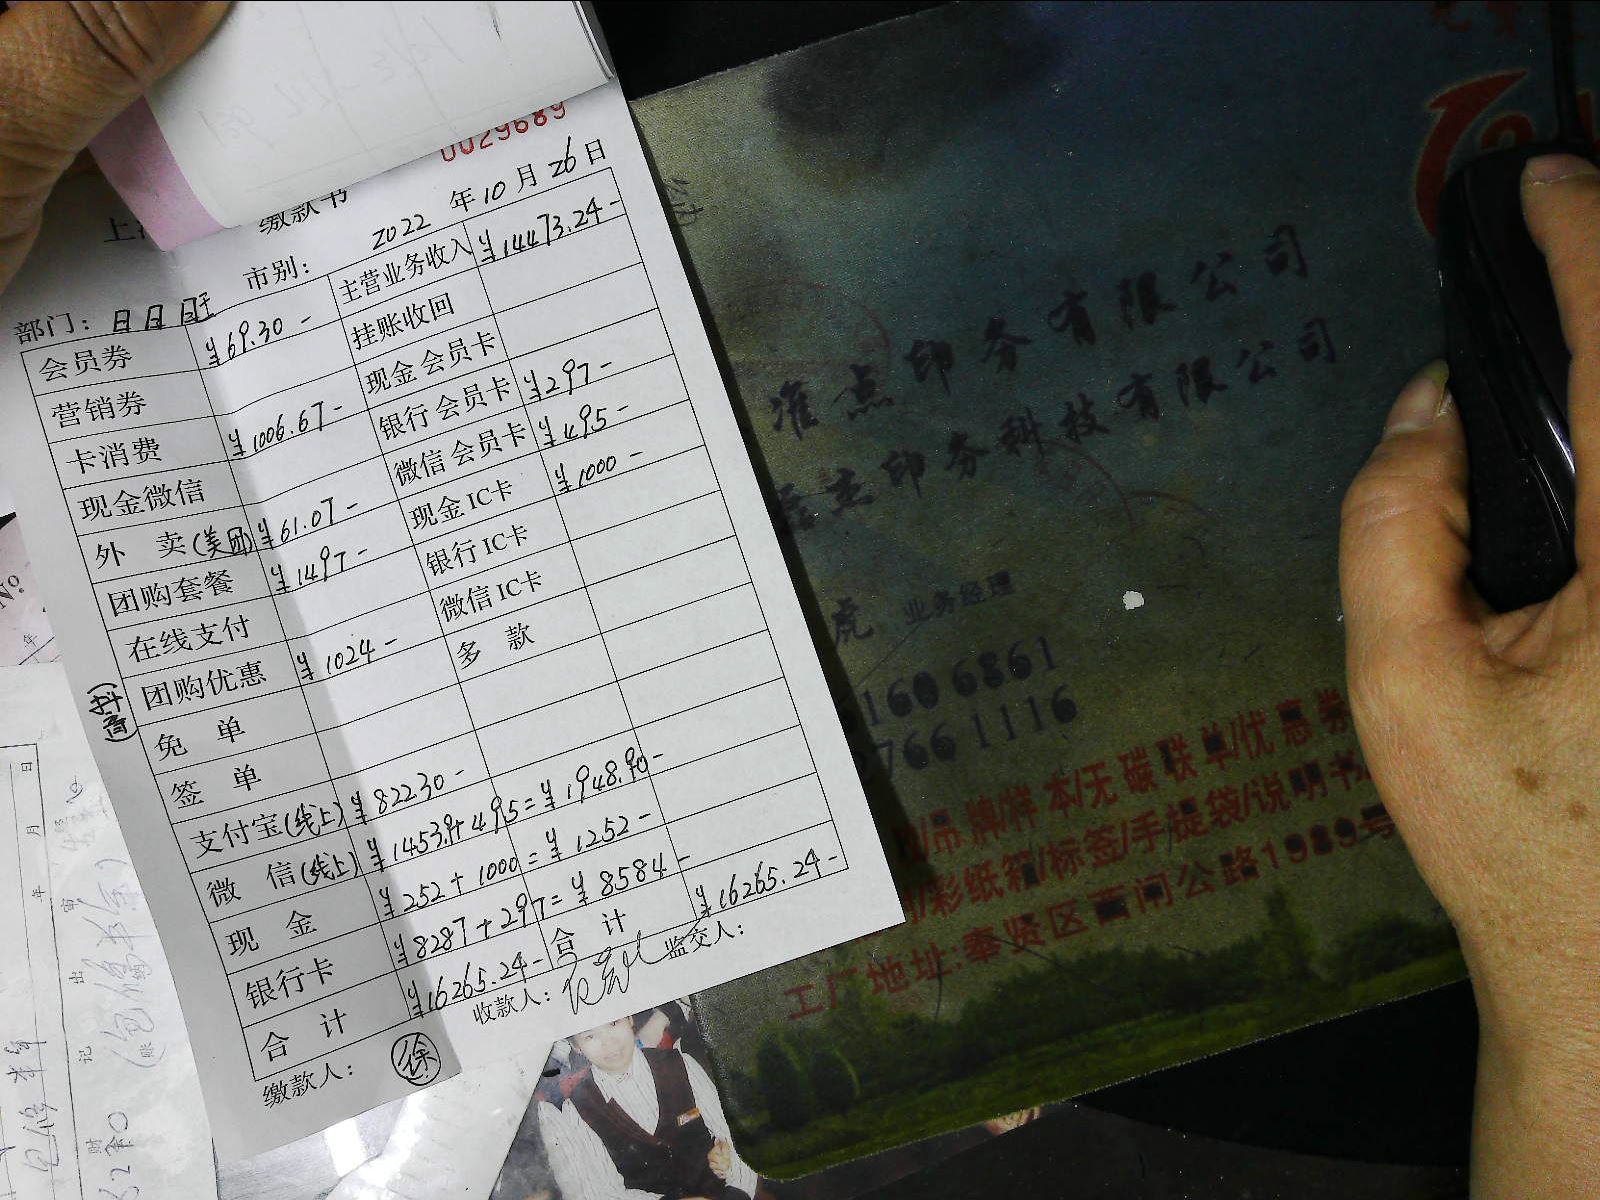 0029689
缴款书
2022 年 10 月 26 日
部门： 市别：
会员券 ¥69.30- 主营业务收入 ¥14473.24-
营销券 挂账收回
卡消费 ¥1006.67- 现金会员卡
现金微信 银行会员卡 ¥297-
外 卖(美团) ¥61.07- 微信会员卡 ¥495-
团购套餐 ¥1497- 现金IC卡 ¥1000-
在线支付 银行IC卡
团购优惠 ¥1024- 微信IC卡
(抖音)
免 单 多 款
签 单
支付宝(线上) ¥822.30-
微 信(线上) ¥1453.9+495=¥1948.90-
现 金 ¥252+1000=¥1252-
银行卡 ¥8287+297=¥8584-
合 计 ¥16265.24- 合 计 ¥16265.24-
缴款人： 徐 收款人： 监交人：
准点印务有限公司
杰印务科技有限公司
虎 业务经理
160 6861
2766 1116
/吊牌/样本/无碳联单/优惠券
/彩纸箱/标签/手提袋/说明书
工厂地址:奉贤区西闸公路1989号